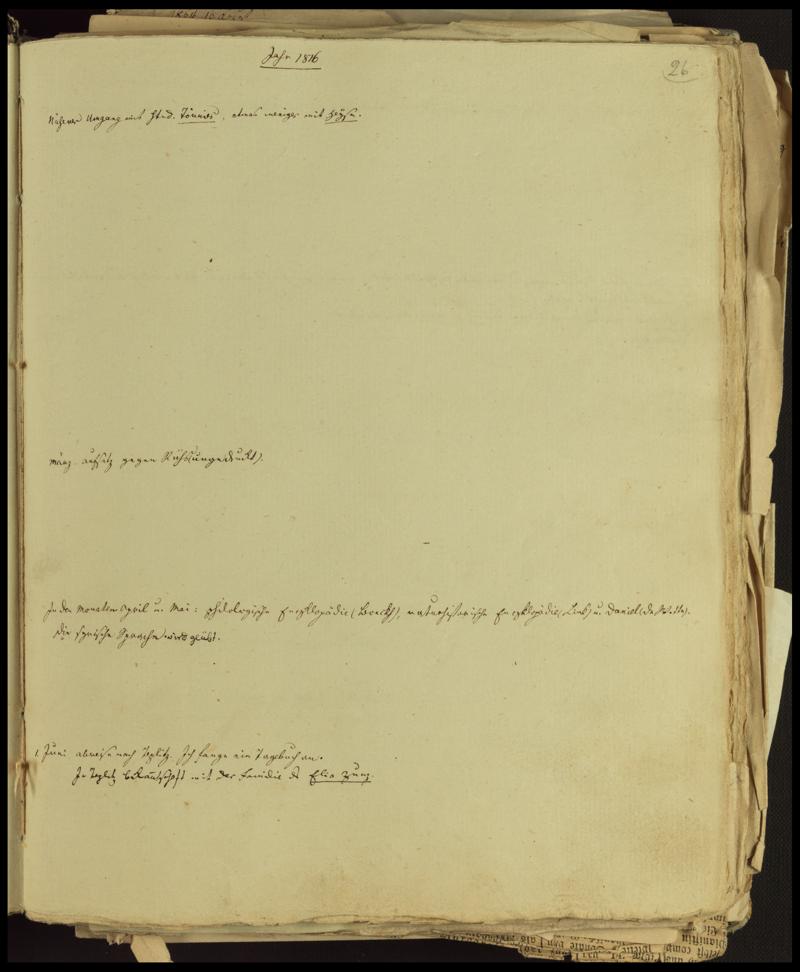 Jahr 1816
26
Näherer Umgang mit Stud. Tönnies, etwas weniger mit Heyse.
März. Aufsatz gegen Rühs (ungedruckt).
In den Monaten April u. Mai: philologische Encyklopädie (Boeckh), naturhistorische Encyklopädie (Link) u. Daniel (de Wette).
Die syrische Sprache wird geübt.
1. Juni abreise nach Teplitz. Ich fange ein Tagebuch an.
In Teplitz Bekanntschaft mit der Familie des Elia Zunz.